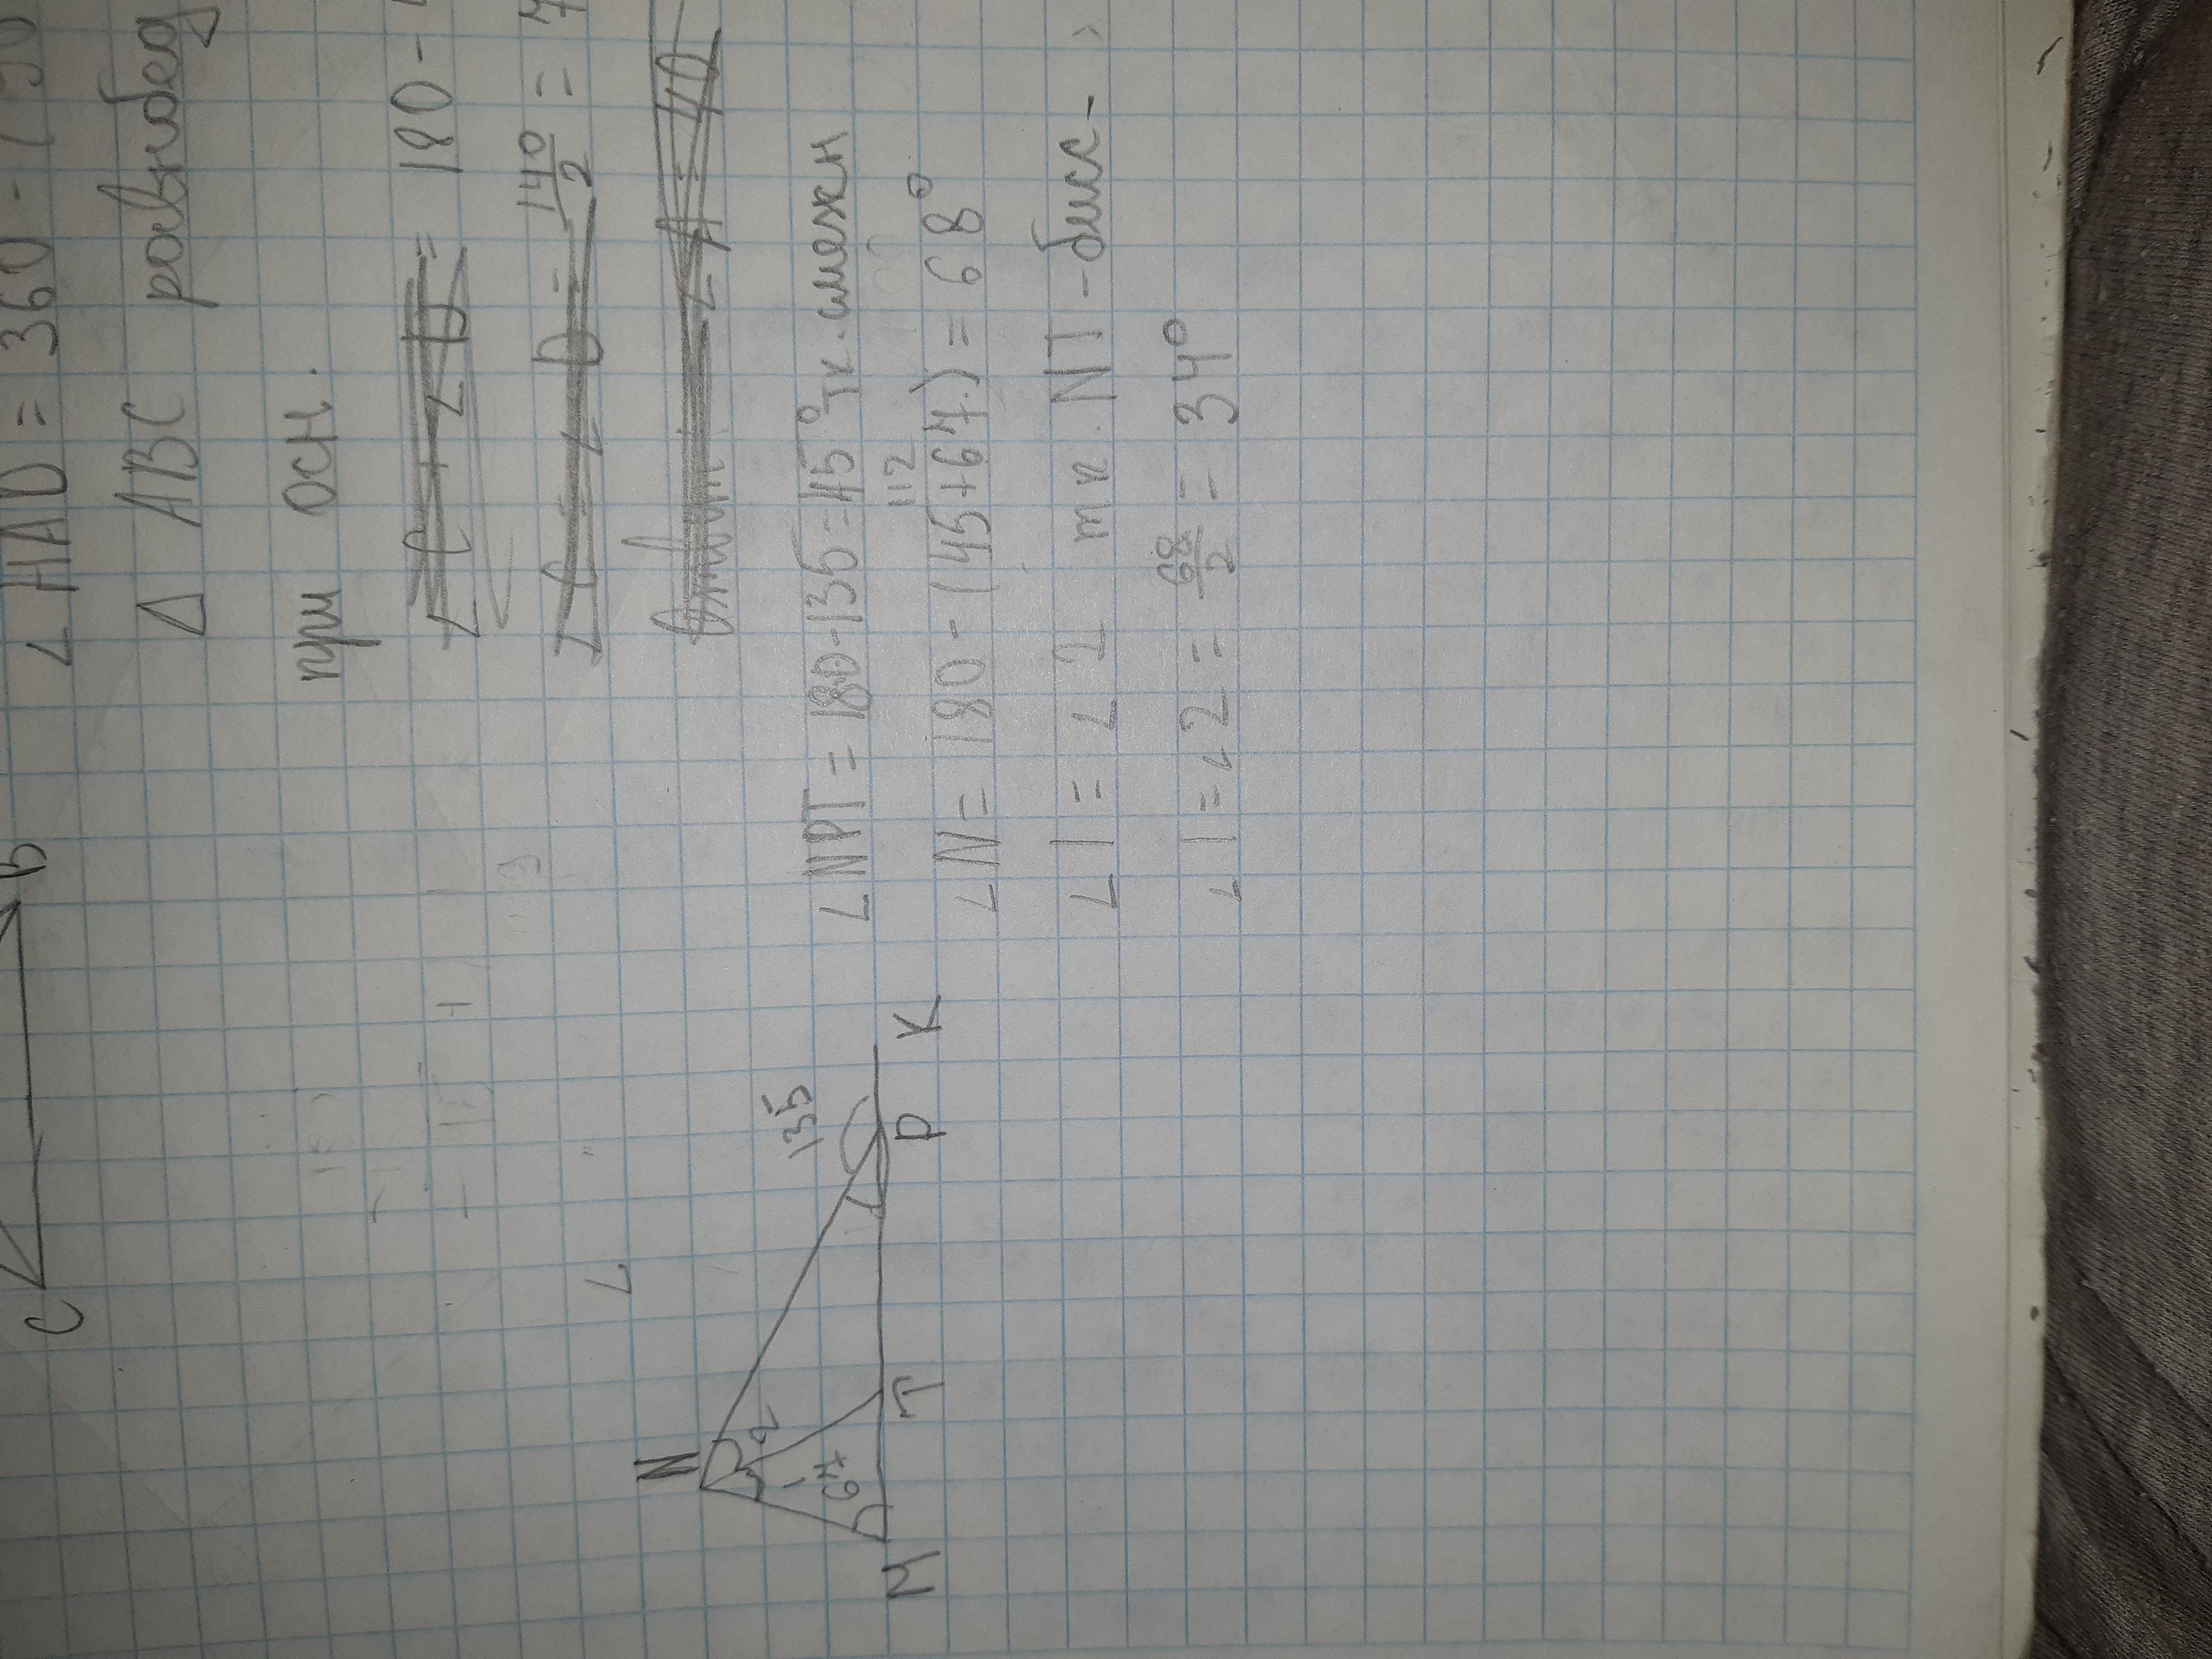 ∠HAD = 360 - (90
B
C
△ ABC равнобед
при осн.
∠C + ∠D = 180 -
∠C = ∠D = 140/2 = 7
∠
N
1
2
64
135
M
T
P
K
∠NPT = 180-135=45° тк. смежн
112
∠N = 180 - (45+64.) = 68°
∠1 = ∠2 тк. NT -бисс-
∠1 = ∠2 = 68/2 = 34°